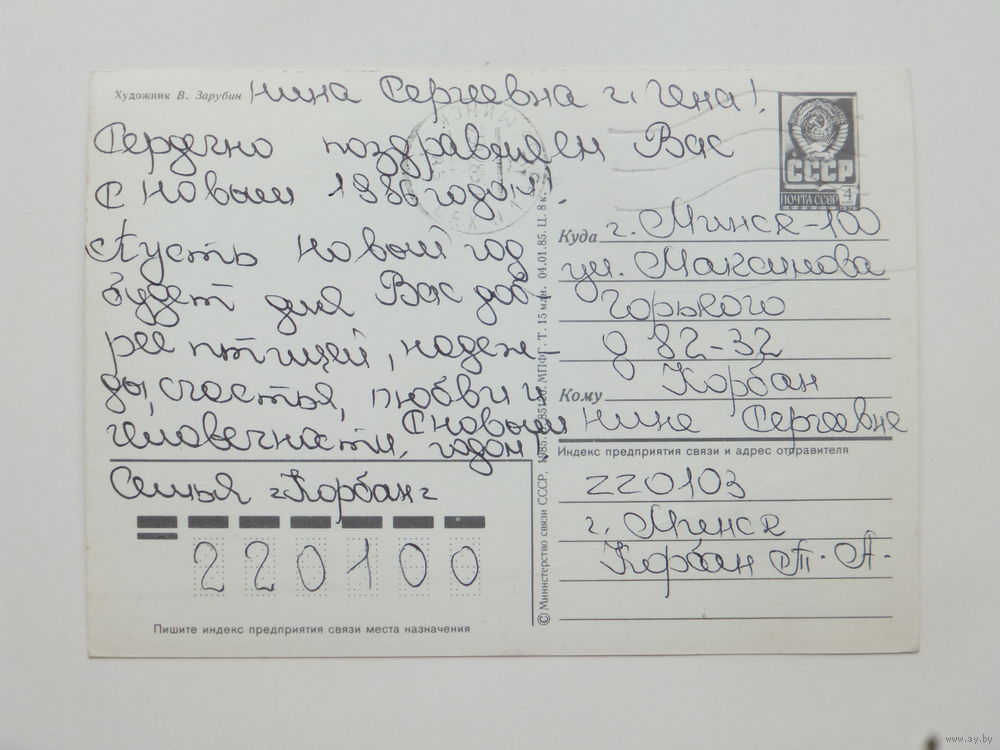 Художник В. Зарубин
Нина Сергеевна и Гена!
Сердечно поздравляем Вас
с Новым 1986 годом!
Пусть новый год
будет для Вас доб-
рее птицей, надеж-
ды, счастья, любви и
человечности,
С Новым
годом!
Семья "Корбан"
220100
Пишите индекс предприятия связи места назначения
© Министерство связи СССР, 1985. МПФГ. Т. 15 млн. 04.01.85. Ц. 8 к.
СССР
ПОЧТА СССР
4
КОП
Куда г. Минск-100
ул. Максимова
Горького
д 82-32
Кому Корбан
Нине Сергеевне
Индекс предприятия связи и адрес отправителя
220103
г. Минск
Корбан Т. А.
МИНСК
www.ay.by